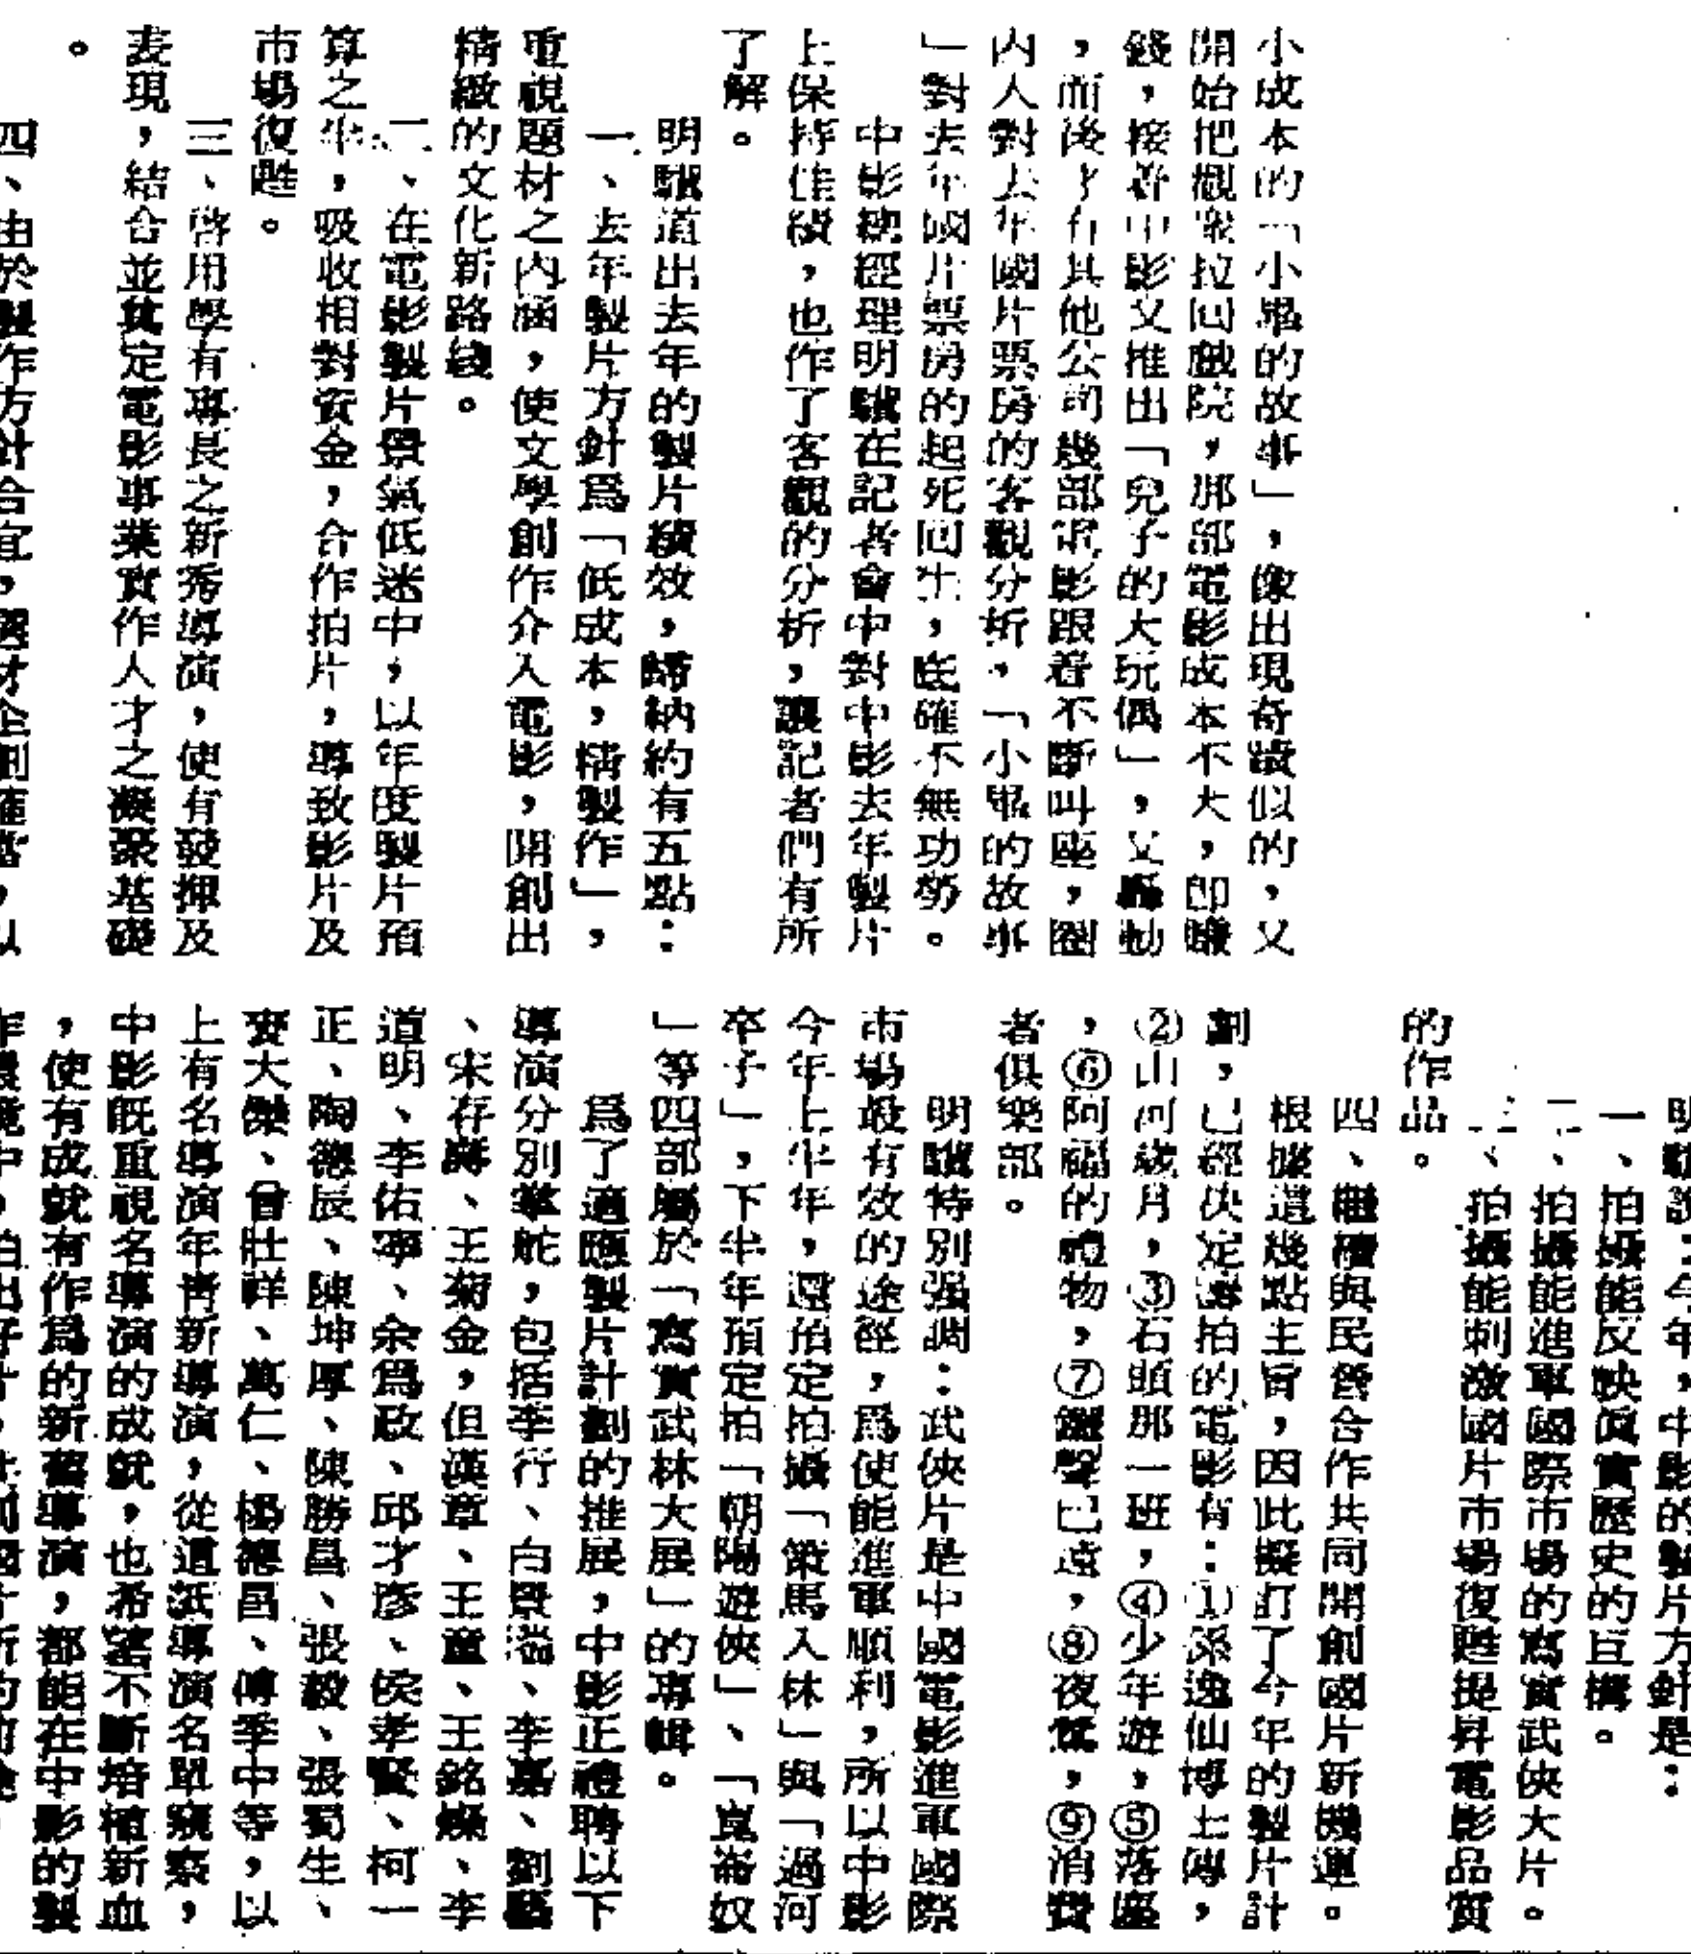 小成本的「小畢的故事」，像出現奇蹟似的，又
開始把觀衆拉回戲院，那部電影成本不大，卽賺
錢，接着中影又推出「兒子的大玩偶」，又轟動
，而後才有其他公司幾部電影跟着不斷叫座，圈
內人對去年國片票房的客觀分析，「小畢的故事
」對去年國片票房的起死回生，底確不無功勞。
中影總經理明驥在記者會中對中影去年製片
上保持佳績，也作了客觀的分析，讓記者們有所
了解。
明驥道出去年的製片績效，歸納約有五點：
一、去年製片方針爲「低成本，精製作」，
重視題材之內涵，使文學創作介入電影，開創出
精緻的文化新路綫。
二、在電影製片景氣低迷中，以年度製片預
算之半，吸收相對資金，合作拍片，導致影片及
市場復甦。
三、啓用學有專長之新秀導演，使有發揮及
表現，結合並奠定電影事業實作人才之凝聚基礎
。
四、由於製作方針合宜，選材企劃確當，以
明驥說：今年，中影的製片方針是：
一、拍攝能反映眞實歷史的巨構。
二、拍攝能進軍國際市場的寫實武俠大片。
三、拍攝能刺激國片市場復甦提昇電影品質
的作品。
四、繼續與民營合作共同開創國片新機運。
根據這幾點主旨，因此擬訂了今年的製片計
劃，已經決定籌拍的電影有：①孫逸仙博士傳，
②山河歲月，③石頭那一班，④少年遊，⑤落塵
，⑥阿福的禮物，⑦鑼聲已遠，⑧夜鶯，⑨消費
者俱樂部。
明驥特別强調：武俠片是中國電影進軍國際
市場最有效的途徑，爲使能進軍順利，所以中影
今年上半年，選拍定拍攝「策馬入林」與「過河
卒子」，下半年預定拍「朝陽遊俠」、「崑崙奴
」等四部屬於「寫實武林大展」的專輯。
爲了適應製片計劃的推展，中影正禮聘以下
導演分別掌舵，包括李行、白景瑞、李嘉、劉藝
、宋存壽、王菊金，但漢章、王童、王銘燦、李
道明、李佑寧、余爲政、邱才彥、侯孝賢、柯一
正、陶德辰、陳坤厚、陳勝昌、張毅、張蜀生、
麥大傑、曾壯祥、萬仁、楊德昌、傅季中等，以
上有名導演年靑新導演，從這張導演名單窺察，
中影旣重視名導演的成就，也希望不斷培植新血
，使有成就有作爲的新舊導演，都能在中影的製
作環境中，拍出好片，共創國片新的前途。